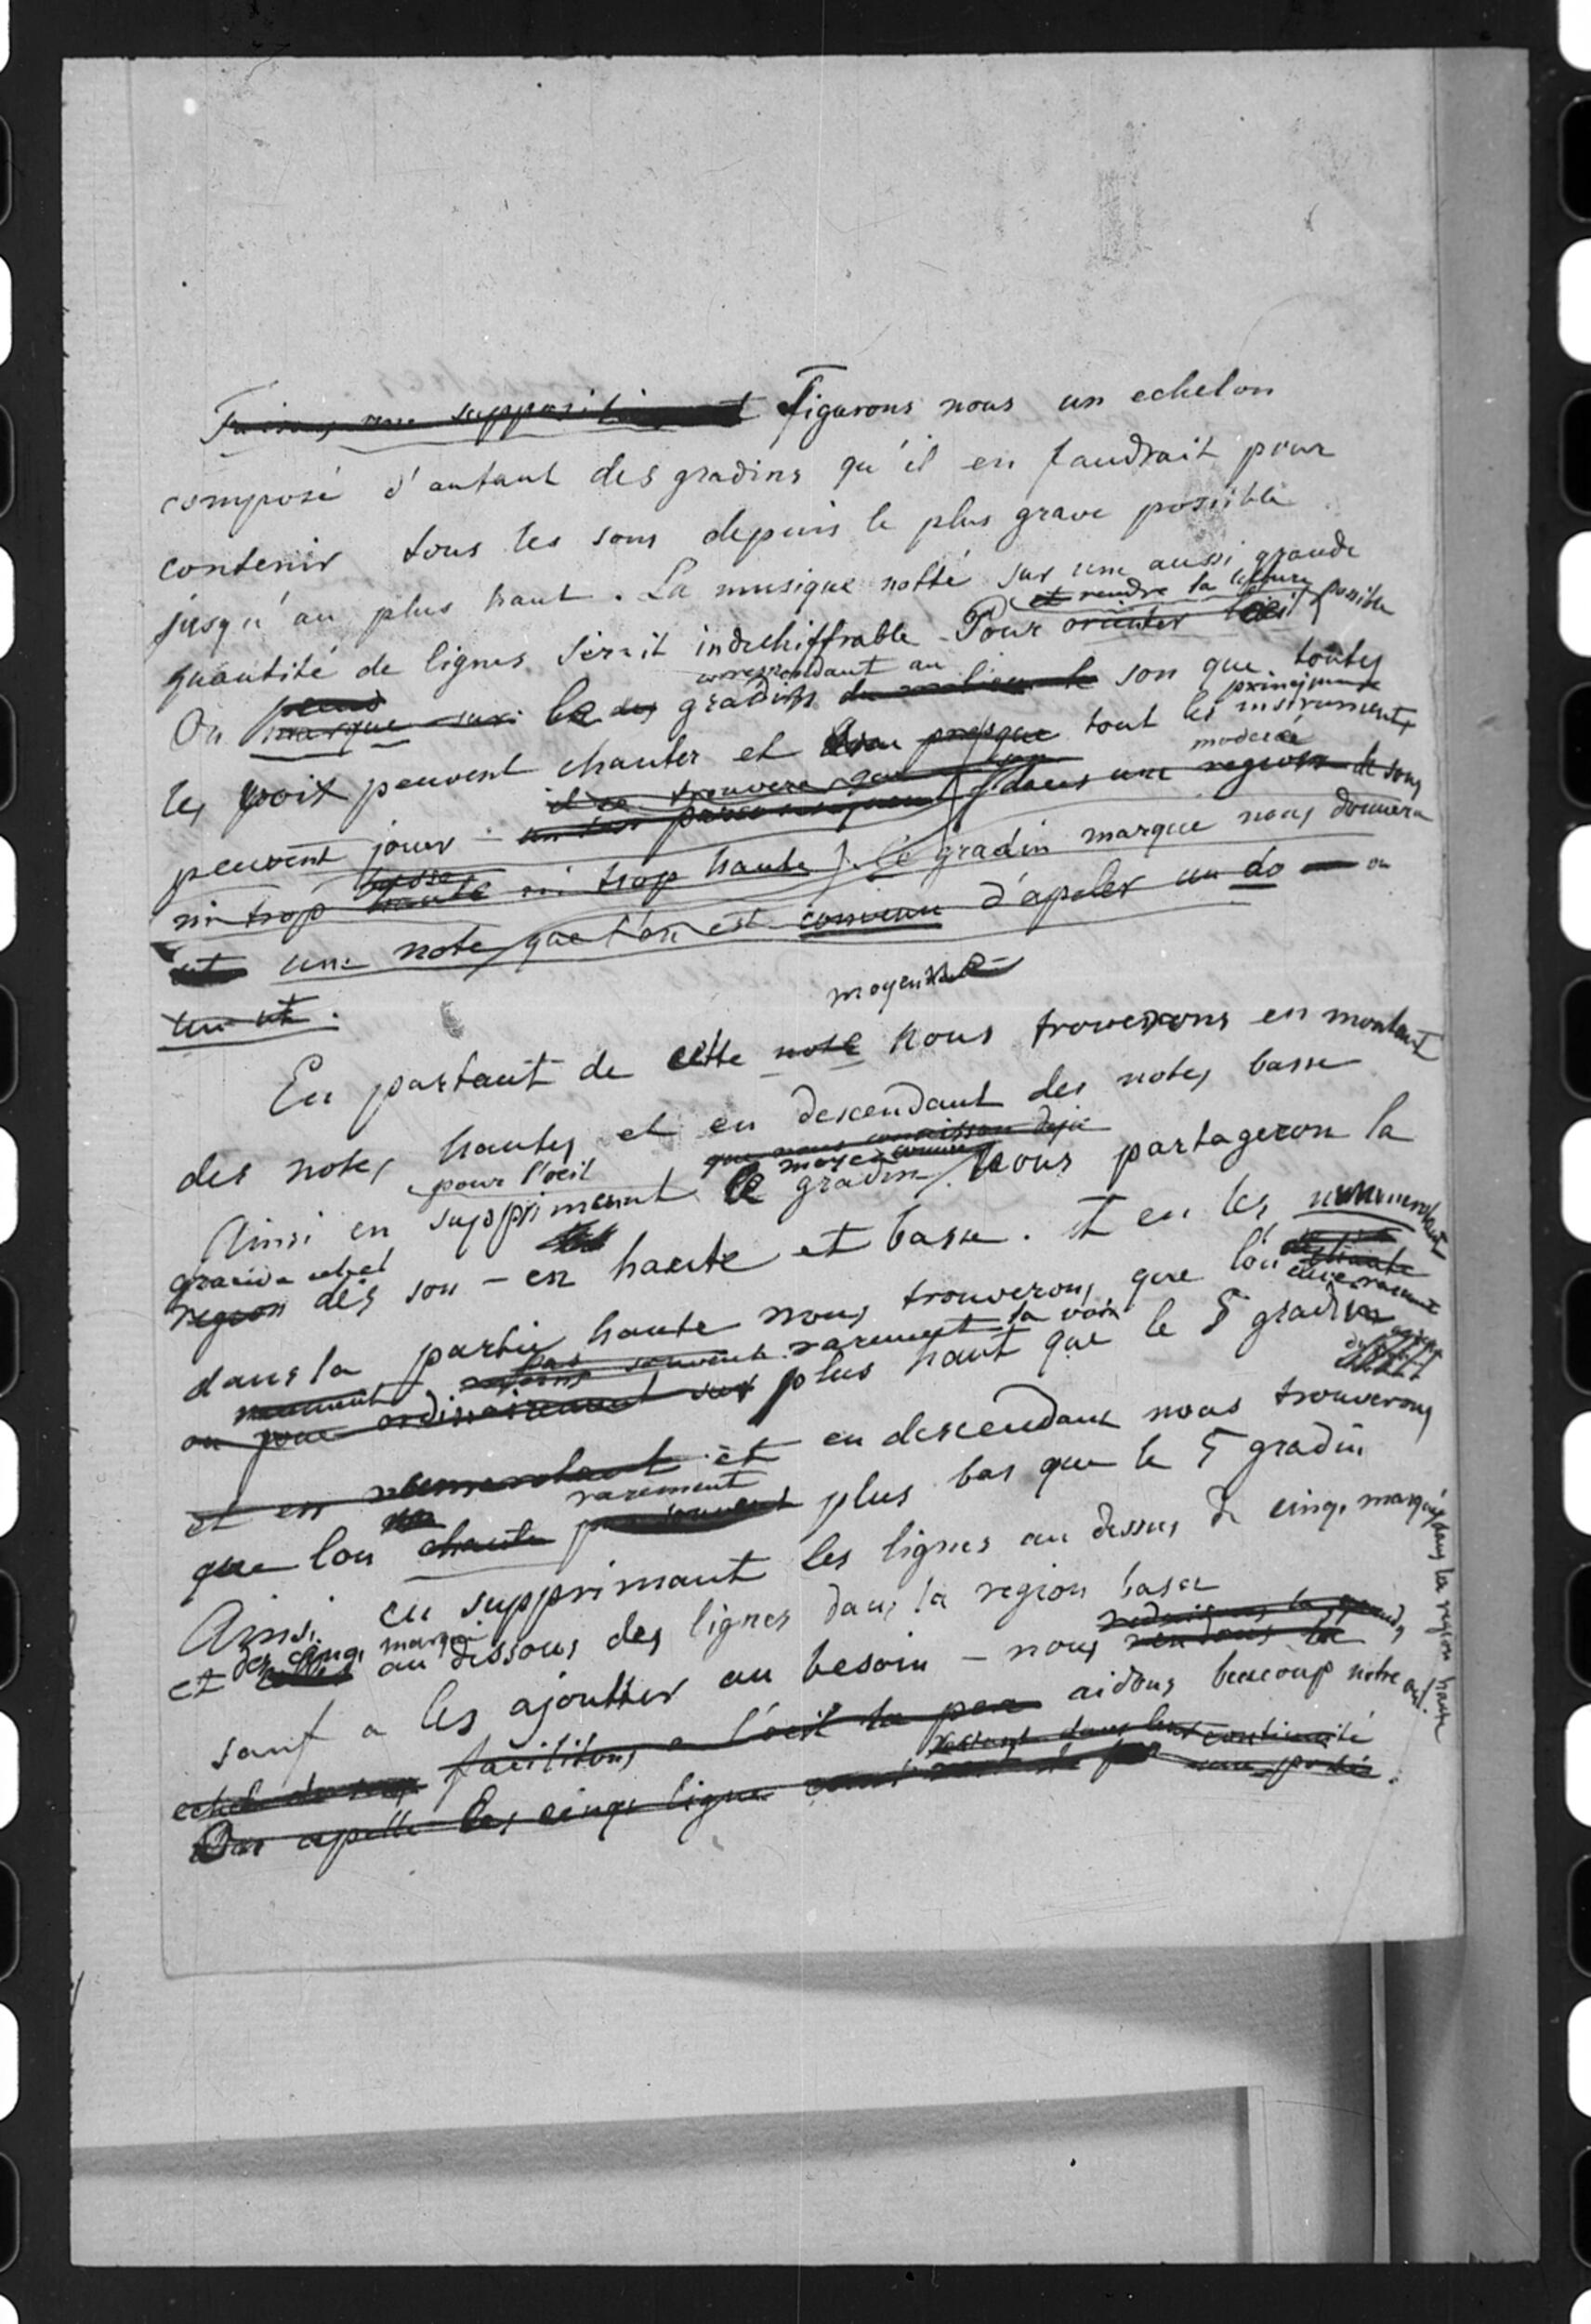 Faisons une supposition Figurons nous un echelon
composé d'autant des gradins qu'il en faudrait pour
contenir tous les sons depuis le plus grave possible
jusqu'au plus haut. La musique notté sur une aussi grande
et rendre la lecture possible
quantité de lignes serait indechiffrable - Pour orienter l'œil
correspondant au
On prend marque sur le des gradins du milieu le son que toutes
principaux
les voix peuvent chanter et presque tout les instruments
il se trouvera que moderée
peuvent jouer - par consequent dans une region de sons
basse
ni trop haute ni trop haute). Ce gradin marqué nous donnera
ut une note que l'on est convenu d'apeler un do ou
un ut.
moyenne
En partant de cette note nous trouverons en montant
des notes hautes et en descendant des notes basse
que nous connaisson deja
pour l'œil
Ainsi en supprimant le gradin nous partageron la
grande echel
region des son - en haute et basse. et en les numerotant
dans la partie haute nous trouverons que l'on chante
rarement la voix
on joue ordinairement sur plus haut que le 5 gradin
et en numerotant et en descendant nous trouverons
rarement
que lon chante plus bas que le 5 gradin
Ainsi en supprimant les lignes au dessus de cinq marqués dans la region haute
et des cinq marqué au dessous des lignes dans la region basse
sauf a les ajoutter au besoin - nous rendons la
echel de facilitons a l'œil la aidons beaucoup notre œil.
restant dans leur continuité
On apelle les cinq ligne une portée.